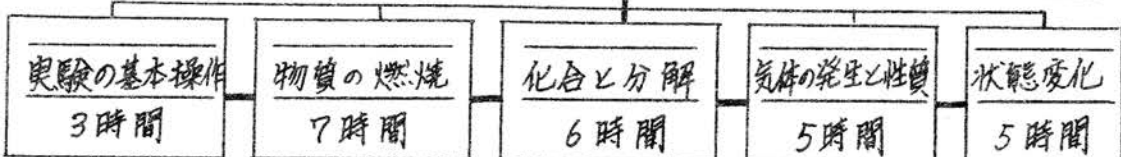 実験の基本操作
3時間
物質の燃焼
7時間
化合と分解
6時間
気体の発生と性質
5時間
状態変化
5時間